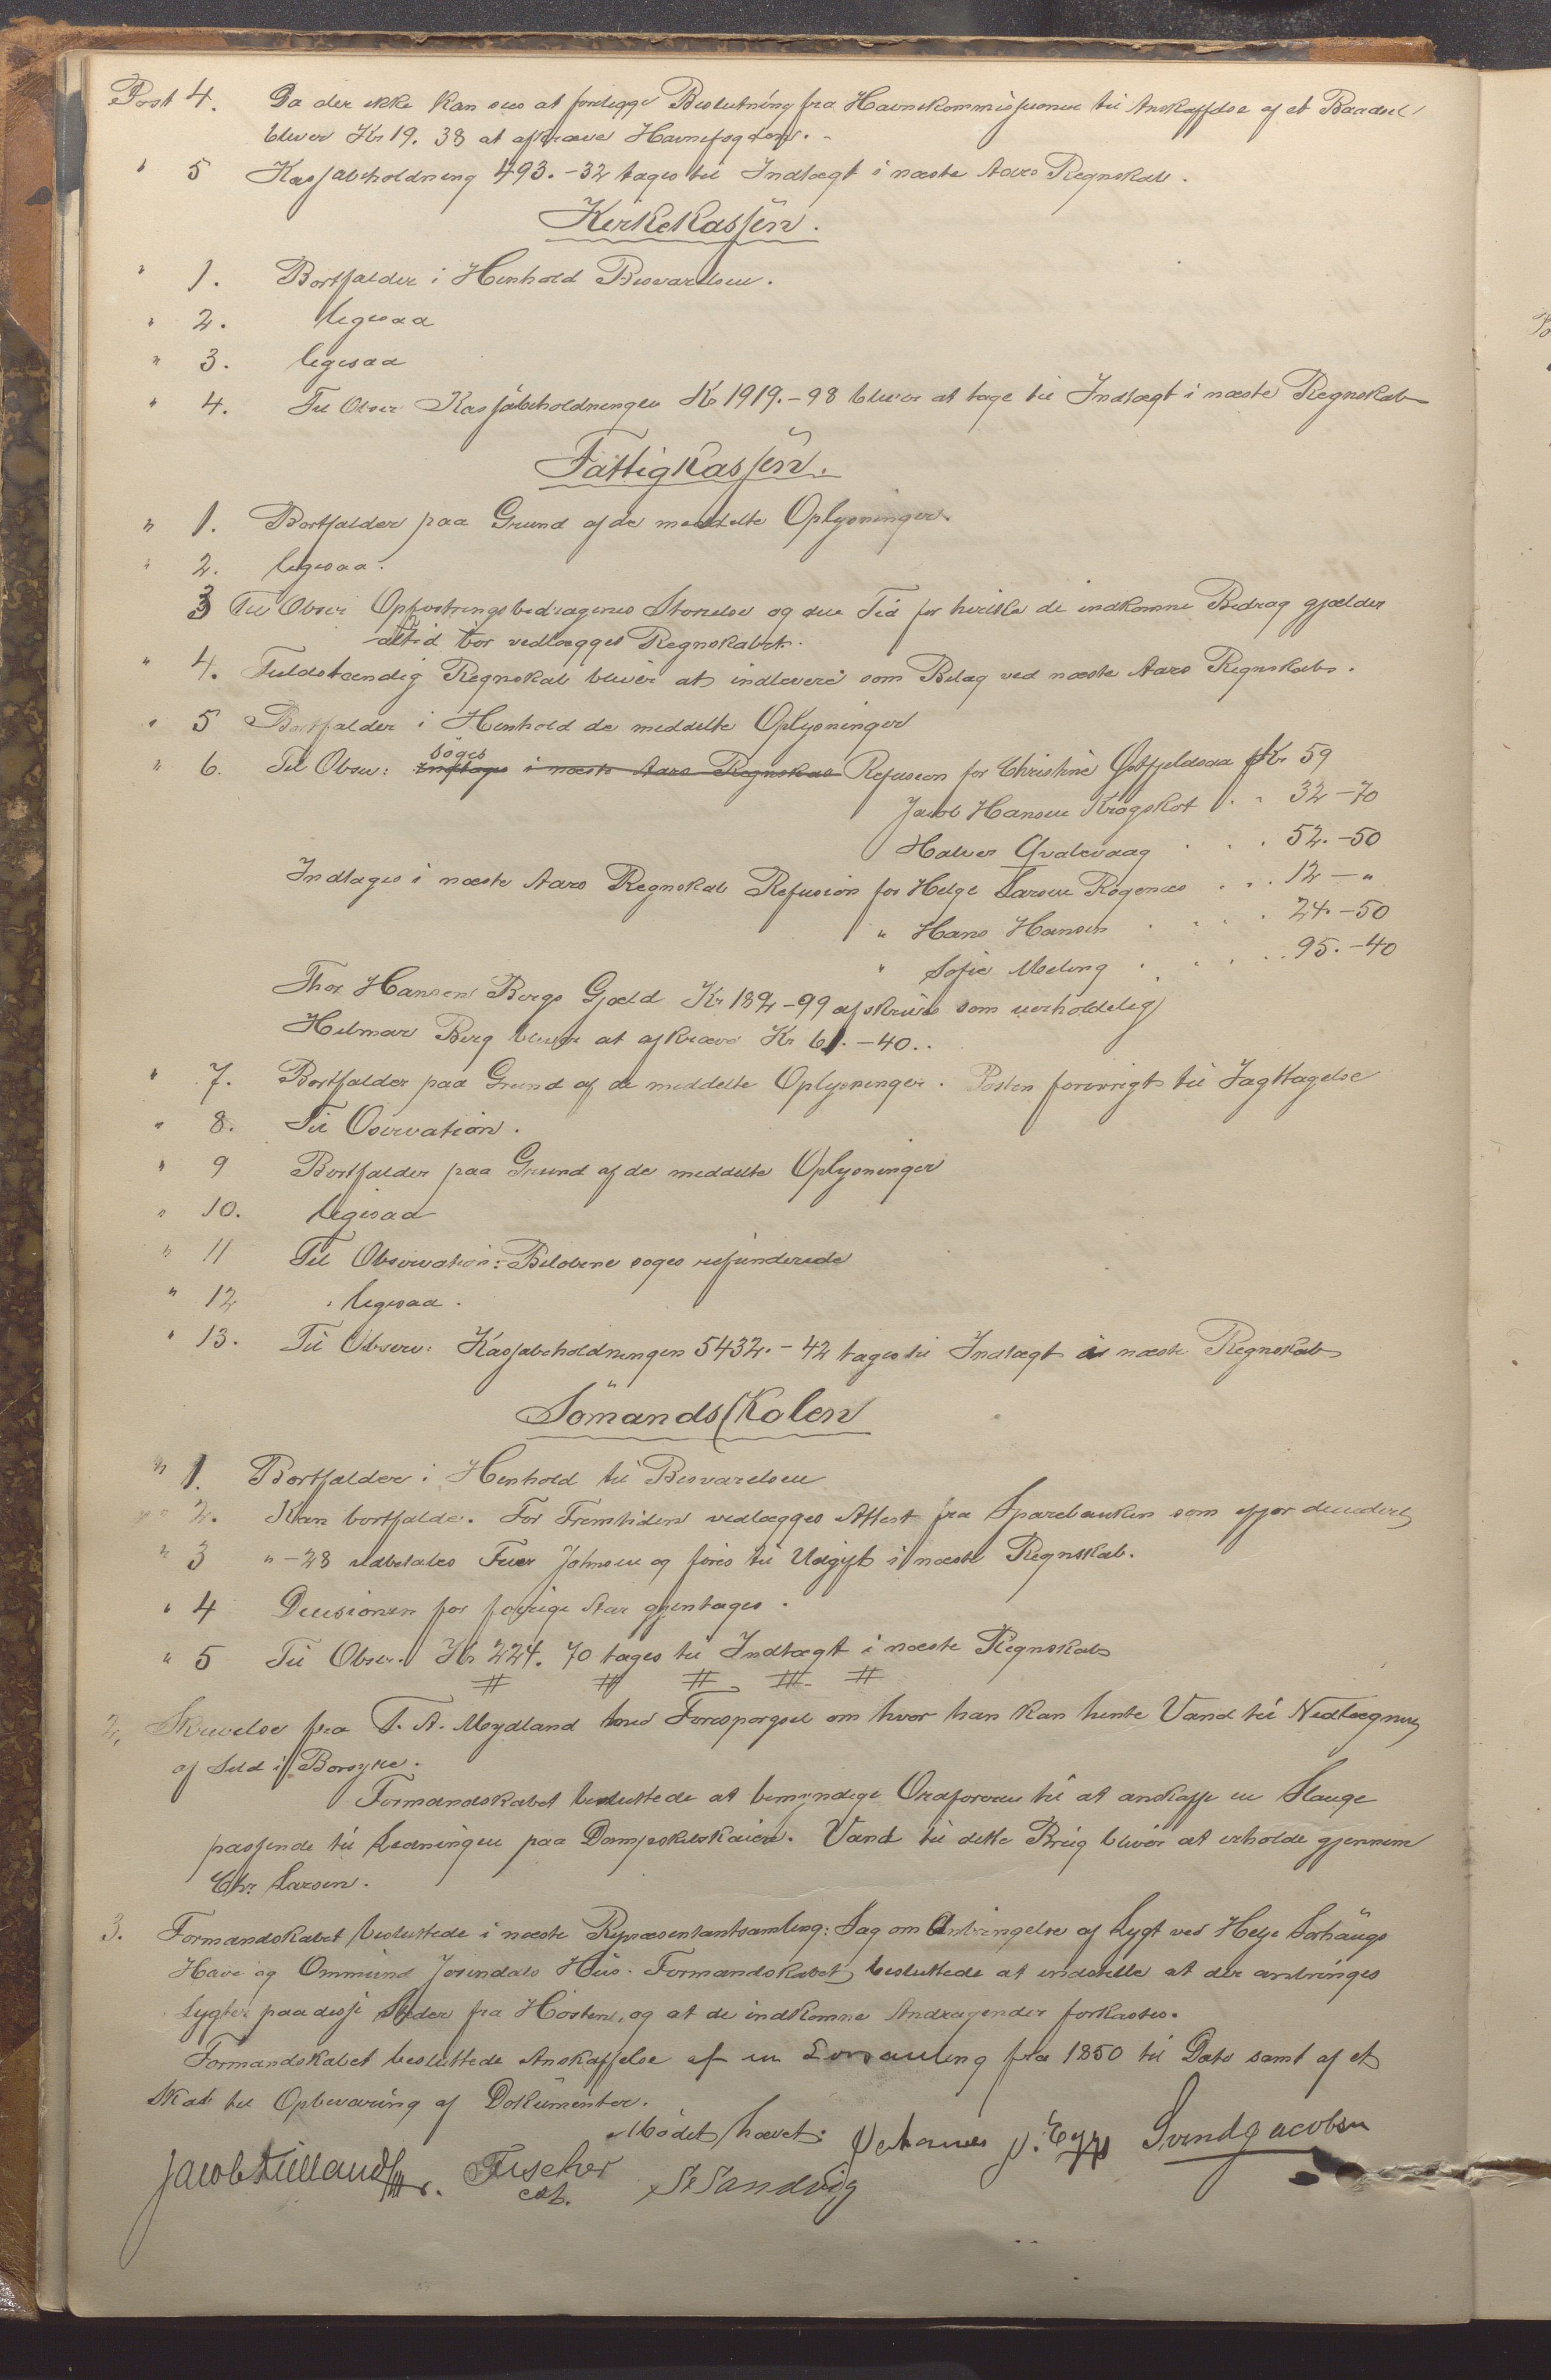 Post 4. Da der ikke kan sees at foreligge Beslutning fra Havnekommissionen til Anskaffelse af et Baadseil
bliver Kr 19. 38 at afkræve Havnefogden. -
" 5 Kassabeholdning 493.-32 tages til Indtægt i næste Aars Regnskab.
Kirkekassen.
" 1. Bortfalder i Henhold Besvarelsen.
" 2. ligesaa
" 3. ligesaa
" 4. Til Obser Kassabeholdningen Kr 1919.-98 bliver at tage til Indtægt i næste Regnskab
Fattigkassen.
" 1. Bortfalder paa Grund af de meddelte Oplysninger.
" 2. ligesaa.
3 Til Obser Opfostringsbidragenes Størrelse og den Tid for hvilke de indkomne Bidrag gjælder
altid bør vedlægges Regnskabet.
" 4. Fuldstændig Regnskab bliver at indlevere som Bilag ved næste Aars Regnskab.
" 5 Bortfalder i Henhold de meddelte Oplysninger
søges
" 6. Til Obser: Indtages i næste Aars Regnskab Refusion for Christine Østfjeldsaa Kr 59
Jacob Hansen Krogskot . . 32-70
Halvor Qvalevaag . . . 52.-50
Indtages i næste Aars Regnskab Refusion for Helge Larsen Røgenæs . . . 12-"
" Hans Hansen . . . . 24.-50
" Sofie Meling . . . . . 95.-40
Thor Hansen Bergs Gjæld Kr 182-99 afskrives som uerholdelig
Hilmar Berg bliver at afkræve Kr 61.-40..
" 7. Bortfalder paa Grund af de meddelte Oplysninger. Posten forøvrigt til Jagttagelse
" 8. Til Oservation.
" 9 Bortfalder paa Grund af de meddelte Oplysninger
" 10. ligesaa
" 11 Til Observation: Beløbene søges refunderede
" 12 ligesaa.
" 13. Til Observ: Kassabeholdningen 5432.-42 tages til Indtægt i næste Regnskab
Sömandsskolen
" 1. Bortfalder i Henhold til Besvarelsen
" 2. Kan bortfalde. For Fremtiden vedlægges Attest fra Sparebanken som
" 3 "-28 udbetales Johnsen og føres til Udgift i næste Regnskab.
" 4 Decisionen for forrige Aar gjentages.
" 5 Til Obser. Kr 224. 70 tages til Indtægt i næste Regnskab
2, Skrivelse fra T. A. Meydland med Forespørgsel om hvor han kan hente Vand til Nedlægning
af Sild i Borøyne.
Formandskabet besluttede at bemyndige Ordføreren til at anskaffe en Slange
passende til Ledningen paa Dampskibskaien. Vand til dette Brug bliver at erholde gjennem
Chr. Larsen.
3. Formandskabet besluttede i næste Repræsentantsamling: Sag om Anbringelse af Lygt ved Helje Sørhaugs
Have og Ommund Jørendals Hus. Formandskabet besluttede at indstille at der anbringes
Lygter paa disse Steder fra Høsten, og at de indkomne Andragender forkastes.
Formandskabet besluttede Anskaffelse af en Lovsamling fra 1850 til Dato samt af et
Skab til Opbevaring af Dokumenter.
Mødet hævet.
Johannes Svend Jacobsen
Jacob Kielland Fischer St Sandvig
cst.